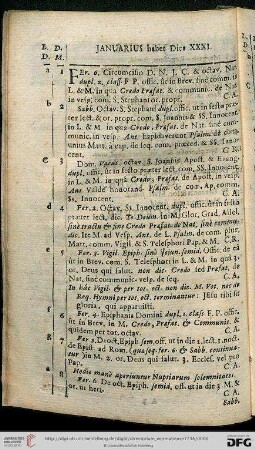 B. D. JANUARIUS habet Dies XXXI.
D. M.
a 1 FEr. 6. Circumcisio D. N. J. C. & octav, Nat.
dupl. 2, class. F P. offic. sit in Brev. sine comm. in
L. & M. in qua Credo Præfat. & communic. de Nat
in vesp. com. S. Stephani or. propt.
C. A.
b 2 Sabb. Octav. S. Stephani dupl. offic. ut in festo præ
ter lect. & or. propt. com. S. Joannis & SS. Innocent.
in L. & M. in qua Credo, Præfat. de Nat. sine
communic. in vesp. Psalm. de
eor. præced. & SS. Innocent.
C. A.
c 3 Dom. octav. S. Joannis Apost. & Evang.
dupl. offic. ut in festo præter lect. com. SS. Innocent.
in L. & M. in quâ Credo, Præfat. de Apost. in vesp.
Ant Valdè honorand. Psalm. de com. Ap. comm.
SS. Innocent.
C. A.
d 4 Fer. 2. Octav, SS. Innocent. dupl. offic. ut in festo
præter lect, dic. Te Deum. in M. Glor, Grad. Allel.
sine tractu & sine Credo Præfat. de Nat, sine commun.
dic. Ite M. ad Vesp. Ant. de L. Psalm. de com. plur.
Mart. comm. Vigil. & S. Telesphori Pap. & M. C. R.
e 5 Fer. 3. Vigil. Epiph. sine Jejun. semid. Offic. de eâ
ut in Brev. com. S. Telesphori in L. & M. in quâ 3.
or, Deus qui salut. non dic. Credo sed Præfat. de
Nat, sine communic. vesp. de seq.
In hâc Vigil. & per tot. oct. non dic. M. Vot. nec de
Req. Hymni per tot oct. terminantur: Jesu tibi sit
gloria, qui apparuisti.
C. A.
f 6 Fer. 4. Epiphania Domini dupl. 1. class F P. offic.
sit in Brev. in M. Credo, Præfat. & Communic. &
quidem per tot. octav.
C. A.
g 7 Fer. 5. De oct. Epiph. sem. off. ut in die 1. lect. 1. noct.
de Epist. ad Rom. (quæ seq. fer. 6 & Sabb. continuan-
tur) in M. 2. or. Deus qui salut. 3. Eccles. vel pro
Pap.
C. A.
Hodie manè aperiuntur Nuptiarum solemnitates.
a 8 Fer. 6. De oct. Epiph. semid, off. ut in die 3 M. &
or, ut heri.
C. A.
Sabb.
DFG